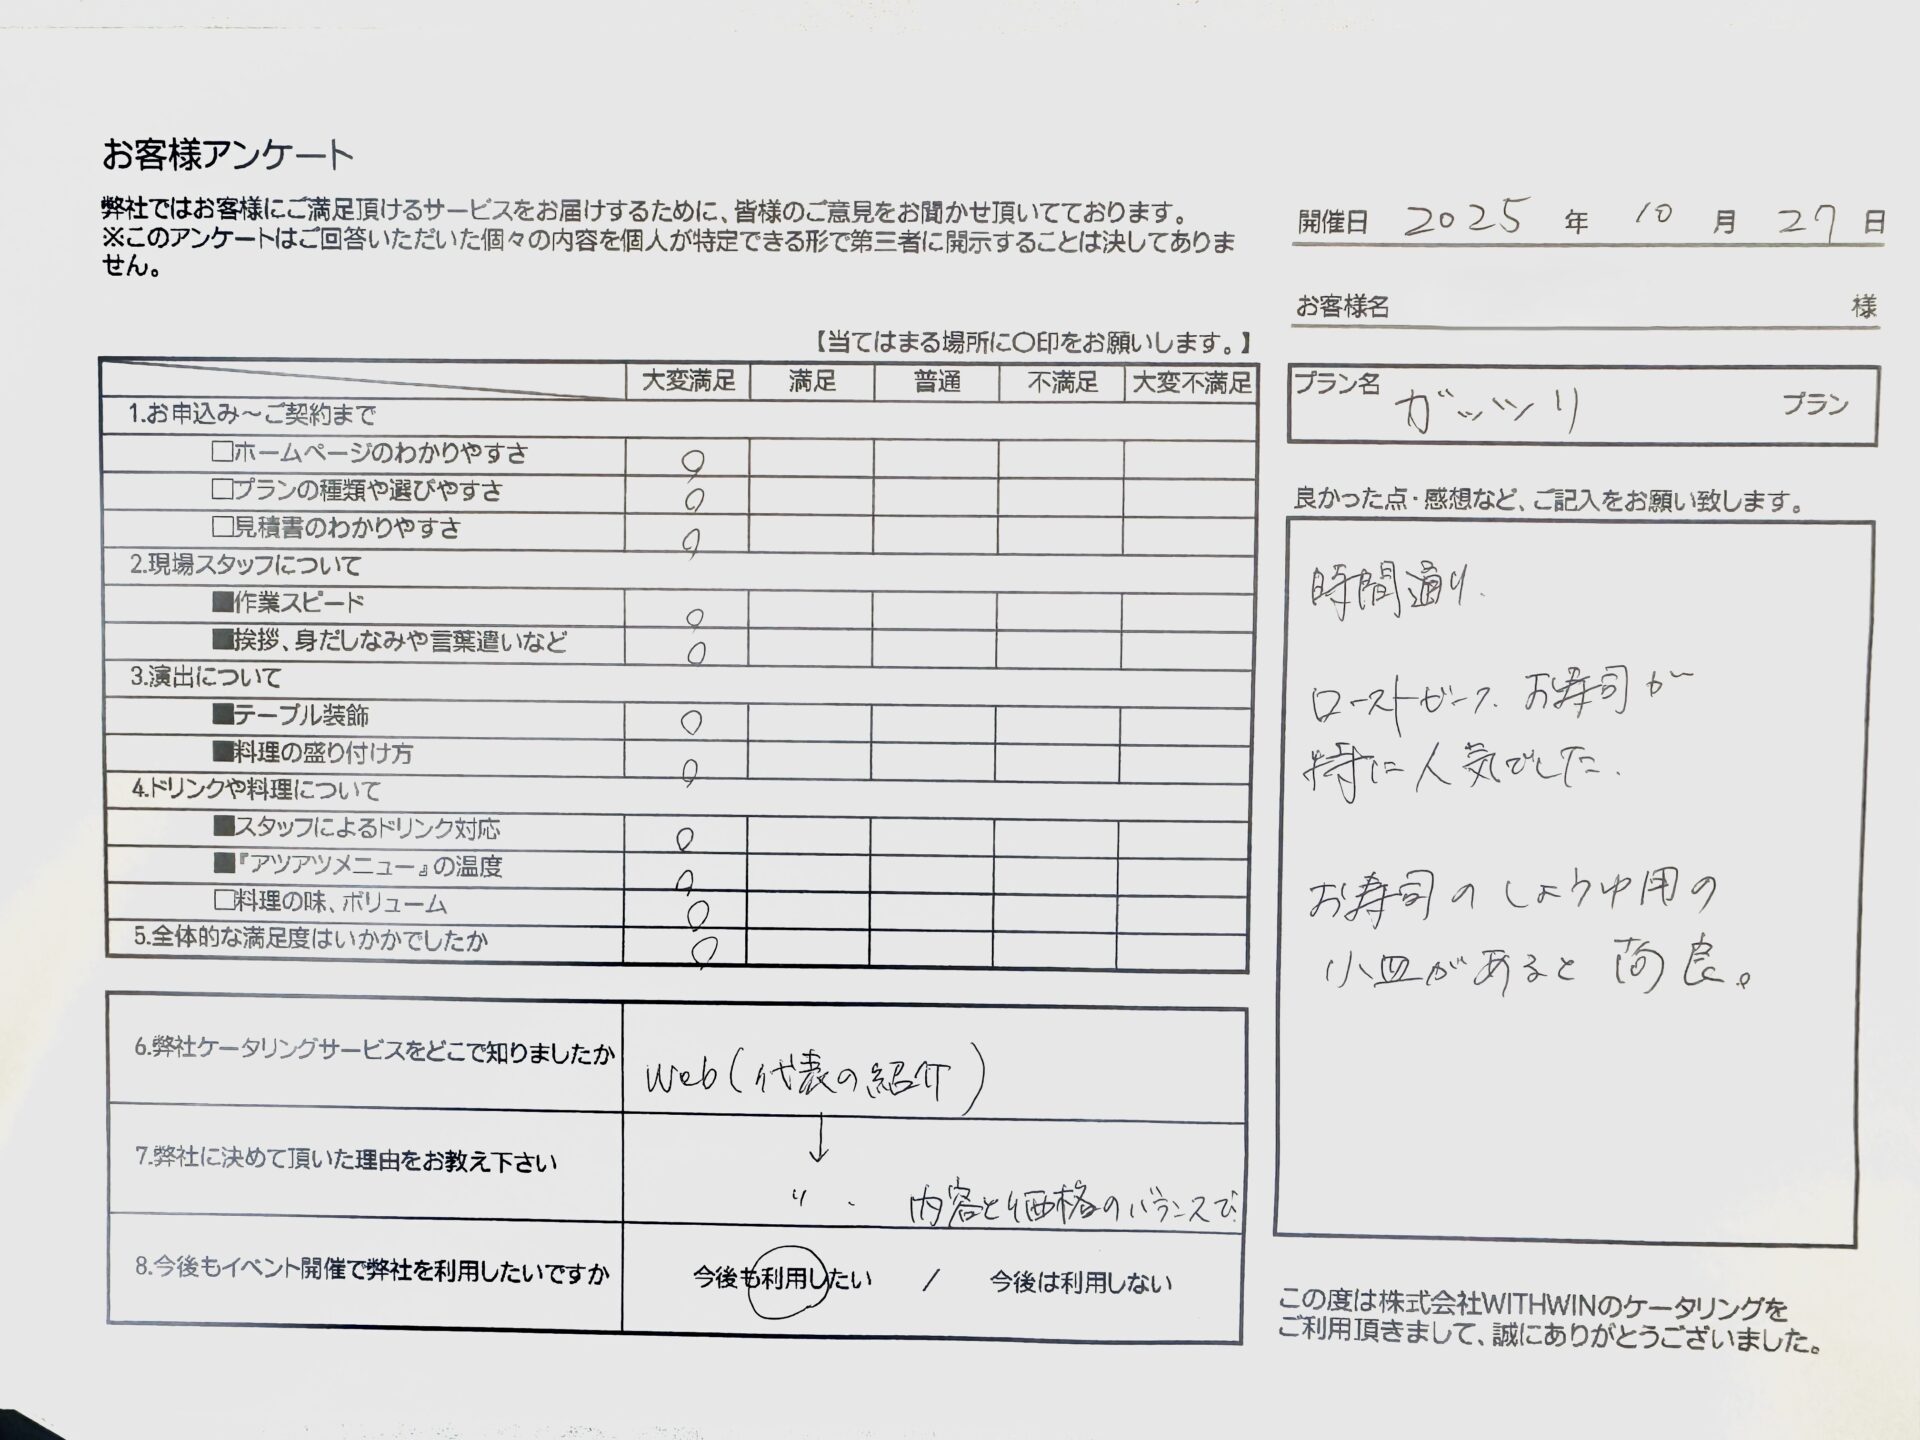 お客様アンケート
弊社ではお客様にご満足頂けるサービスをお届けするために、皆様のご意見をお聞かせ頂いてております。
※このアンケートはご回答いただいた個々の内容を個人が特定できる形で第三者に開示することは決してありま
せん。
開催日 2025 年 10 月 27 日
お客様名 様
プラン名 ガッツリ プラン
【当てはまる場所に〇印をお願いします。】
大変満足 満足 普通 不満足 大変不満足
1.お申込み～ご契約まで
□ホームページのわかりやすさ ○
□プランの種類や選びやすさ ○
□見積書のわかりやすさ ○
2.現場スタッフについて
■作業スピード ○
■挨拶、身だしなみや言葉遣いなど ○
3.演出について
■テーブル装飾 ○
■料理の盛り付け方 ○
4.ドリンクや料理について
■スタッフによるドリンク対応 ○
■『アツアツメニュー』の温度 ○
□料理の味、ボリューム ○
5.全体的な満足度はいかかでしたか ○
6.弊社ケータリングサービスをどこで知りましたか Web(代表の紹介)
↓
7.弊社に決めて頂いた理由をお教え下さい 〃. 内容と価格のバランスで
8.今後もイベント開催で弊社を利用したいですか 今後も利用したい / 今後は利用しない
良かった点・感想など、ご記入をお願い致します。
時間通り.
ローストビーフ、お寿司が
特に人気でした.
お寿司のしょうゆ用の
小皿があると尚良。
この度は株式会社WITHWINのケータリングを
ご利用頂きまして、誠にありがとうございました。